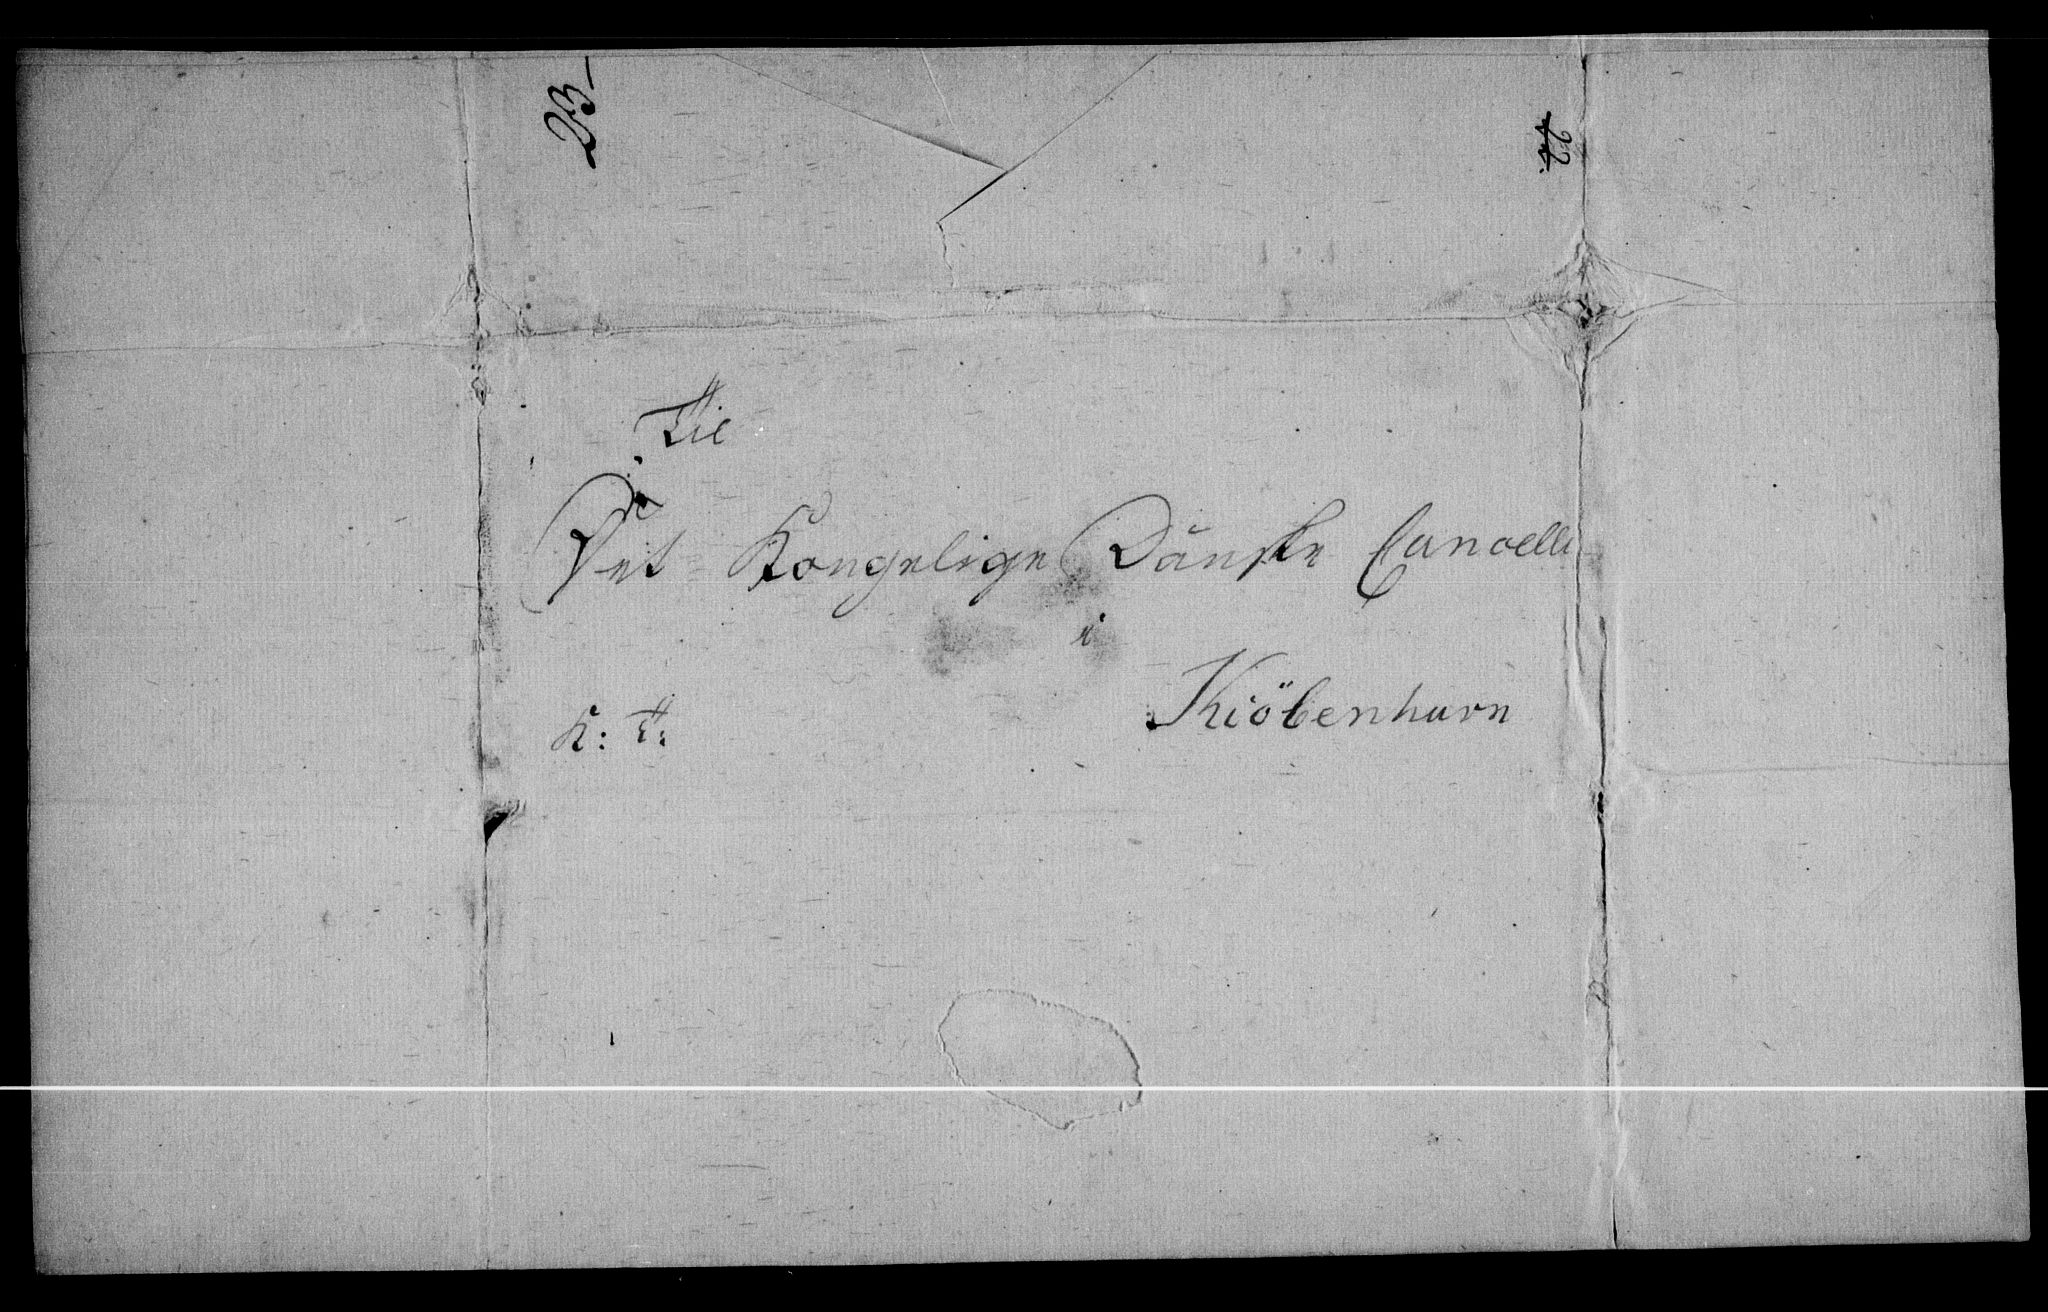 23
Til
Det Kongelige Dänske Cancelli
i
Kiöbenhavn
K: T: